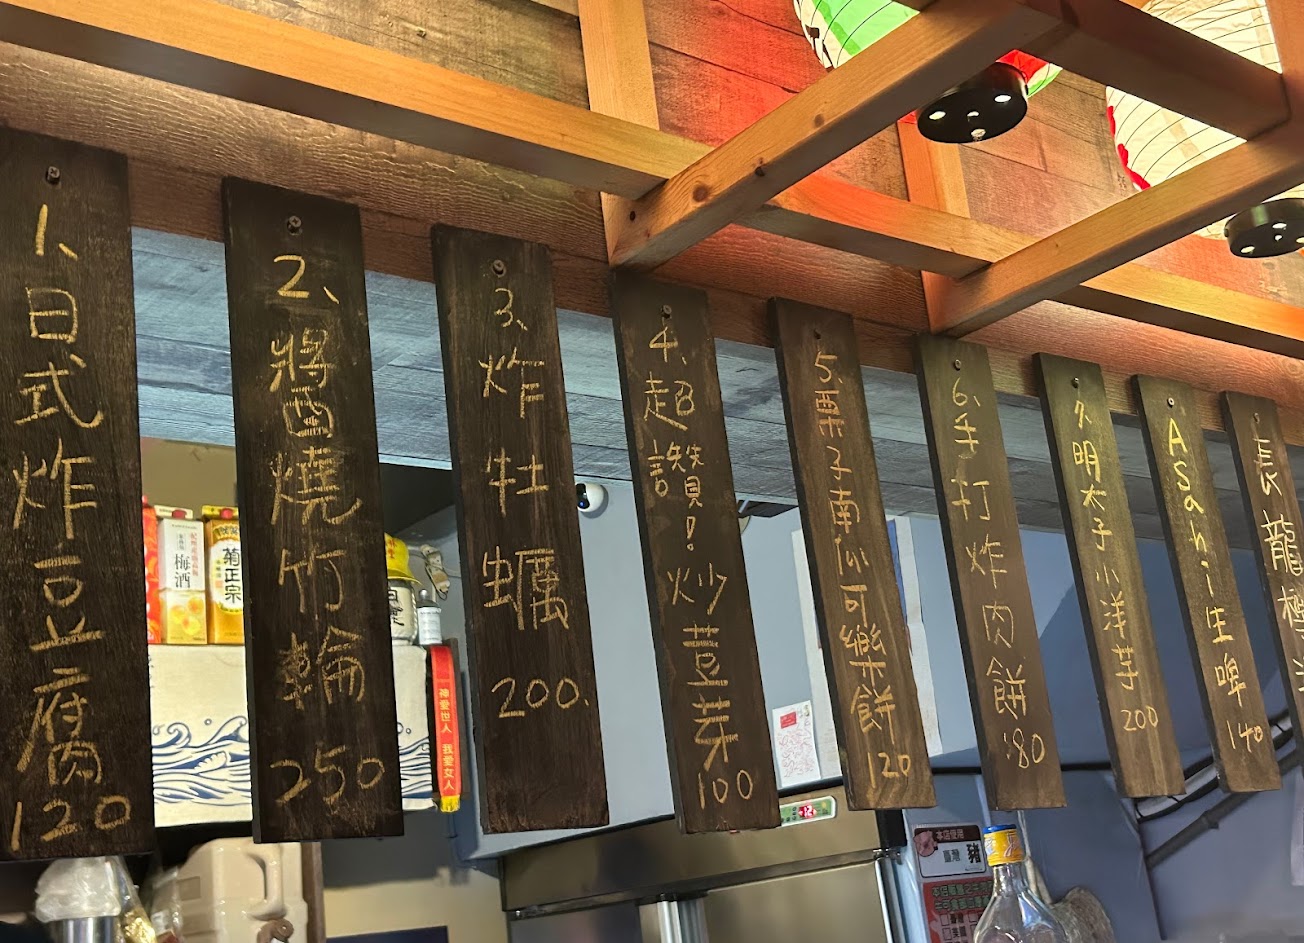 1、日式炸豆腐120
2、將酉燒竹輪250
3、炸牡蠣200.
4、超讚!炒荳芽100
5、栗子南瓜可樂餅120
6、手打炸肉餅80
7、明太子小洋芋200
ASahi生啤140
長龍
梅酒
菊正宗
神愛世人 我愛女人
本店使用
臺灣 豬